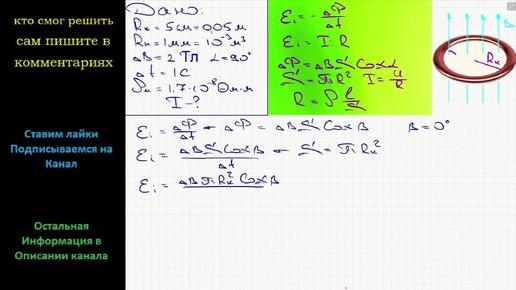 кто смог решить
сам пишите в
комментариях
Ставим лайки
Подписываемся на
Канал
Остальная
Информация в
Описании канала
Дано:
Rк = 5см = 0,05 м
Rп = 1мм = 10⁻³ м³
ΔB = 2 Тл α = 90°
Δt = 1С
ρм = 1,7·10⁻⁸ Ом·м
I - ?
Ei = - ΔФ/Δt
Ei = I·R
ΔФ = ΔB S Cosα
S = πR² I = U/R
R = ρ l/S
B
Rк
Ei = ΔФ/Δt ← ΔФ = ΔB S Cos B B = 0°
Ei = ΔB S Cos B/Δt ← S = πRк²
Ei = ΔB πRк² Cos B